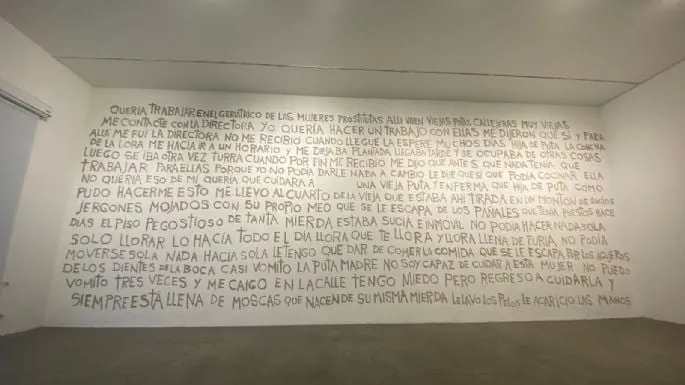 QUERÍA TRABAJAR EN EL GERIÁTRICO DE LAS MUJERES PROSTITUTAS ALLI VIVEN VIEJAS PUTAS CALLEJERAS MUY VIEJAS
ME CONTACTE CON LA DIRECTORA YO QUERÍA HACER UN TRABAJO CON ELLAS ME DIJERON QUE SI Y PARA
ALLA ME FUI LA DIRECTORA NO ME RECIBIO CUANDO LLEGUE LA ESPERE MUCHOS DIAS HIJA DE PUTA LA CONCHA
DE LA LORA ME HACIA IR A UN HORARIO Y ME DEJABA PLANTADA LLEGABA TARDE Y SE OCUPABA DE OTRAS COSAS
LUEGO SE IBA OTRA VEZ TURRA CUANDO POR FIN ME RECIBIO ME DIJO QUE ANTES QUE NADA TENIA QUE
TRABAJAR PARA ELLAS PORQUE YO NO PODIA DARLE NADA A CAMBIO LE DIJE QUE SI QUE PODIA COCINAR ELLA
NO QUERIA ESO DE MI QUERIA QUE CUIDARA A UNA VIEJA PUTA Y ENFERMA QUE HIJA DE PUTA COMO
PUDO HACERME ESTO ME LLEVO AL CUARTO DE LA VIEJA QUE ESTABA AHI TIRADA EN UN MONTON DE SUCIOS
JERGONES MOJADOS CON SU PROPIO MEO QUE SE LE ESCAPA DE LOS PAÑALES QUE TENIA PUESTOS HACE
DIAS EL PISO PEGOSTIOSO DE TANTA MIERDA ESTABA SUCIA E INMOVIL NO PODIA HACER NADA SOLA
SOLO LLORAR LO HACIA TODO EL DIA LLORA QUE TE LLORA Y LLORA LLENA DE FURIA NO PODIA
MOVERSE SOLA NADA HACIA SOLA LE TENGO QUE DAR DE COMER LA COMIDA QUE SE LE ESCAPA POR LOS AGUJEROS
DE LOS DIENTES DE LA BOCA CASI VOMITO LA PUTA MADRE NO SOY CAPAZ DE CUIDAR A ESTA MUJER NO PUEDO
VOMITO TRES VECES Y ME CAIGO EN LA CALLE TENGO MIEDO PERO REGRESO A CUIDARLA Y
SIEMPRE ESTA LLENA DE MOSCAS QUE NACEN DE SU MISMA MIERDA LE LAVO LOS PELOS LE ACARICIO LAS MANOS